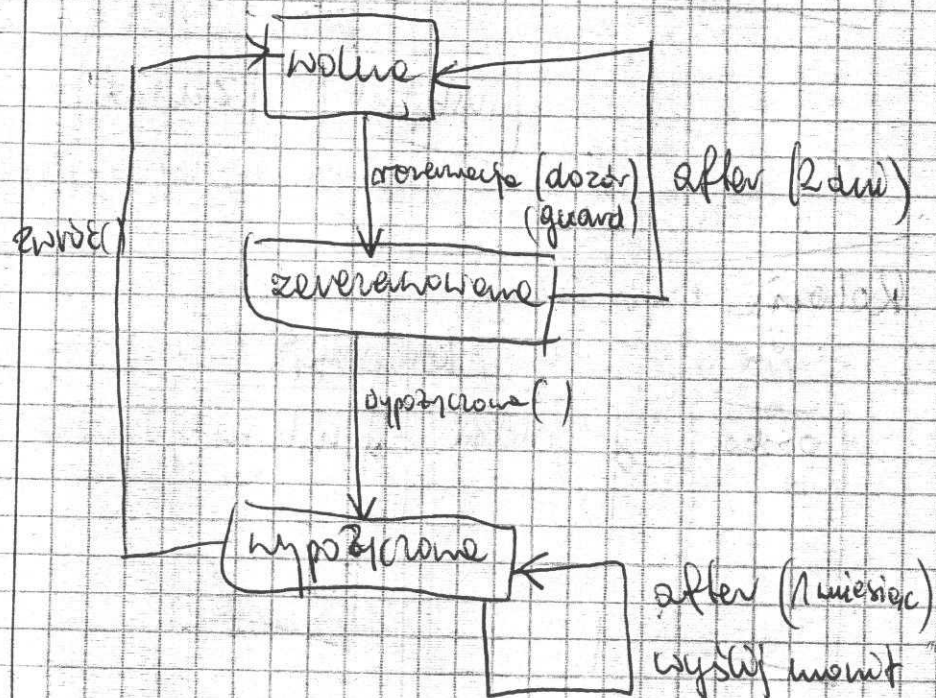 wolna
rezerwacja (dozór)
(guard)
after (2 dni)
zwróć()
zarezerwowana
wypożyczona()
wypożyczona
after (1 miesiąc)
wyślij monit